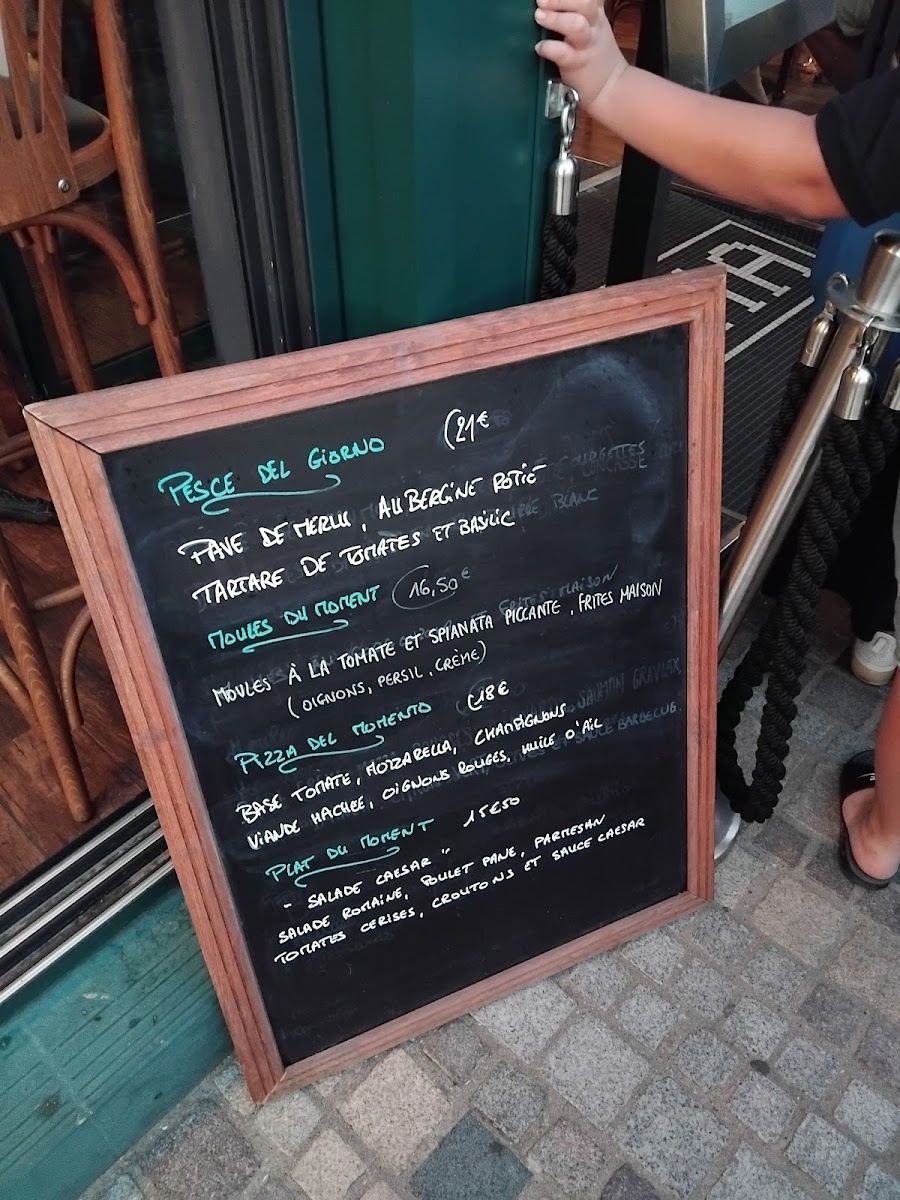 PESCE DEL GIORNO (21€
PAVE DE MERLU, AUBERGINE ROTIE
TARTARE DE TOMATES ET BASILIC
MOULES DU MOMENT 16,50€
MOULES À LA TOMATE ET SPIANATA PICCANTE, FRITES MAISON
(OIGNONS, PERSIL, CRÈME)
PIZZA DEL MOMENTO (18€
BASE TOMATE, MOZZARELLA, CHAMPIGNONS
VIANDE HACHEE, OIGNONS ROUGES, HUILE D'AIL
PLAT DU MOMENT 15€50
- SALADE CAESAR "
SALADE ROMAINE, POULET PANE, PARMESAN
TOMATES CERISES, CROUTONS ET SAUCE CAESAR